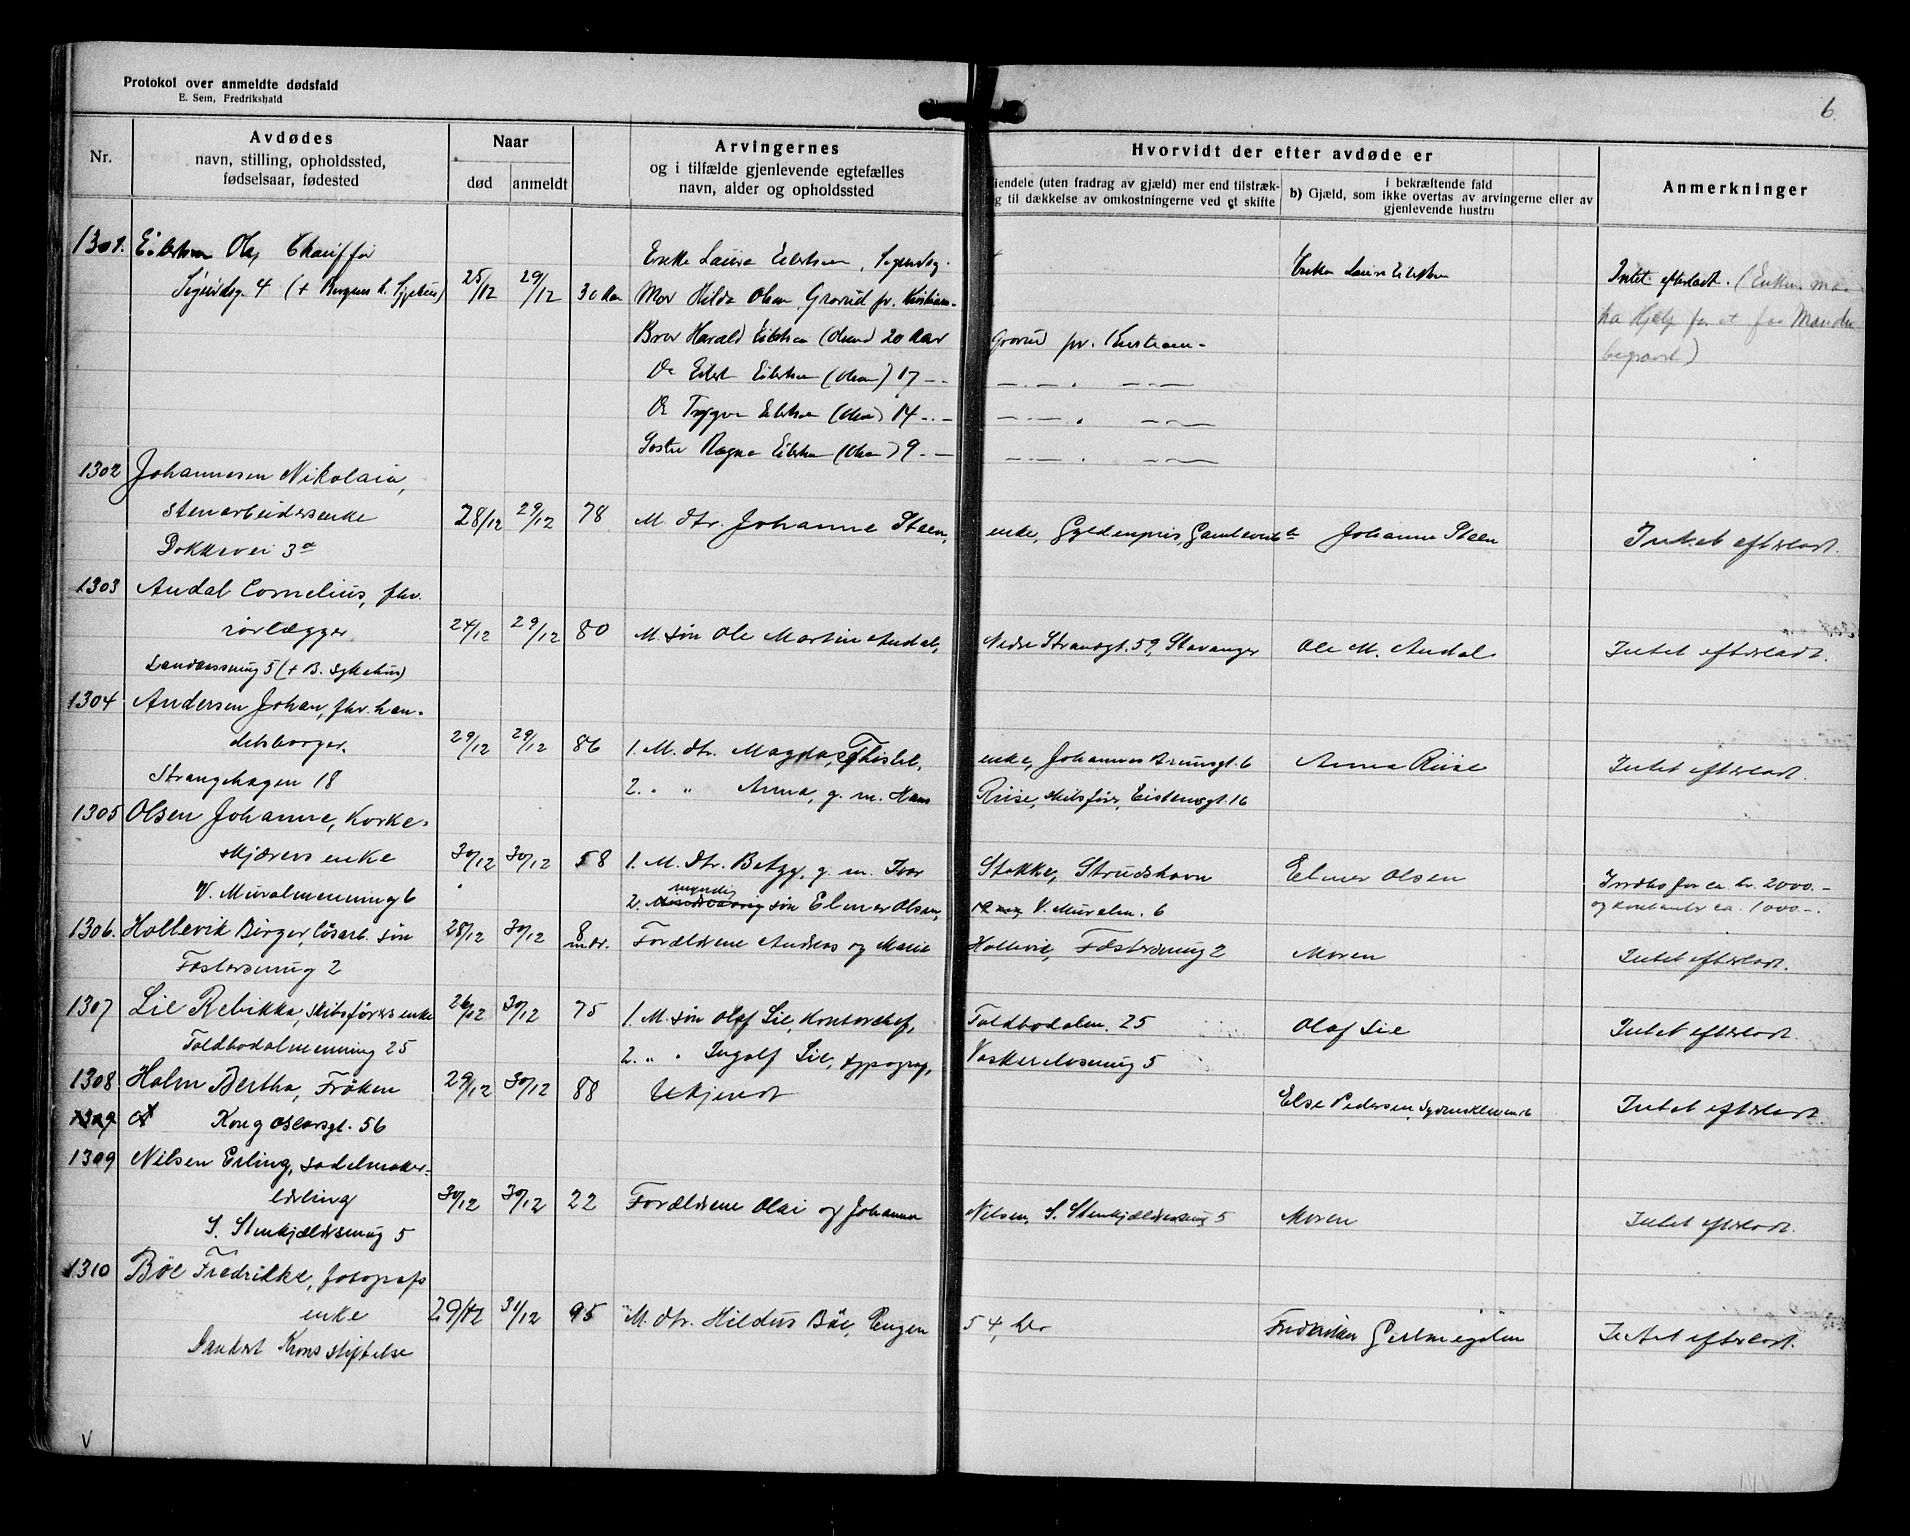 Protokol over anmeldte dødsfald
E. Sem, Fredrikshald
6.
Nr.
Avdødes
navn, stilling, opholdssted,
fødselsaar, fødested
Naar
død
anmeldt
Arvingernes
og i tilfælde gjenlevende egtefælles
navn, alder og opholdssted
Hvorvidt der efter avdøde er
iendele (uten fradrag av gjæld) mer end tilstræk-
g til dækkelse av omkostningerne ved et skifte
i bekræftende fald
b) Gjæld, som ikke overtas av arvingerne eller av
gjenlevende hustru
Anmerkninger
1301. Eilertsen Olaf Chauffør Enke Laura Eilertsen, Sigurdsg. Enken Laura Eilertsen Intet efterladt. (Enken maa
Sigurdsg. 4 (+ Bergens k. Sygehus) 25/12 29/12 30 Aar Mor Hilda Olsen, Grorud pr. Kristian-
ha Hjelp for at faa Manden
Bror Harald Eilertsen (Olsen) 20 Aar Grorud pr. Kristian-
begravet)
Do Eilert Eilertsen (Olsen) 17 - -
Do Trygve Eilertsen (Olsen) 14 - -
Søster Ragna Eilertsen (Olsen) 9 - -
1302 Johannesen Nikolaia,
stenarbeidersenke 28/12 29/12 78 M. dtr. Johanne Steen, enke, Gyldenpris, Gamleveien Johanne Steen Intet efterladt.
Dokkevei 3a
1303 Andal Cornelius, fhv.
rørlægger 24/12 29/12 80 M. søn Ole Martin Andal, Nedre Strandgt. 59, Stavanger Ole M. Andal Intet efterladt.
Sandvikssmug 5 (+ B. sykehus)
1304 Andersen Johan, fhv. han-
delsborger. 29/12 29/12 86 1. M. dtr. Magda Thistel, enke, Johannes Bruunsgt. 6 Anna Riise Intet efterladt.
Strangehagen 18 2. " " Anna, g. m. Hans Riise, skibsfører, Eistensgt. 16
1305 Olsen Johanne, Korke-
skjærers enke 30/12 30/12 58 1. M. Dtr. Betzy, g. m. Ivar Stokke, Strudshavn Elmer Olsen Indbo for ca kr. 2000.-
V. Muralmenning 6 2. myndig søn Elmer Olsen, V. Muralm. 6 og kontanter ca. 1000-.
1306. Hollevik Birger, løsarb. søn 28/12 30/12 8 mdr. Forældrene Andreas og Marie Hollevik, Fostersmug 2 Moren Intet efterladt.
Fostersmug 2
1307 Lie Rebikka, skibsførers enke 26/12 30/12 75 1. M. søn Olaf Lie, Kontorchef, Toldbodalm. 25 Olaf Lie Intet efterladt.
Toldbodalmenning 25 2. " " Ingolf Lie, typograf, Vaskerelvsmug 5
1308 Holm Bertha, Frøken 29/12 30/12 88 Ukjendt Else Pedersen, Sydneskleven 16 Intet efterladt.
1309 Kong Oscarsgt. 56
1309 Nilsen Erling, sadelmaker-
lærling 30/12 30/12 22 Forældrene Olai og Johanna Nilsen, S. Stenkjældersmug 5 Moren Intet efterladt.
S. Stenkjældersmug 5
1310 Bøe Fredrikke, fotografs
enke 29/12 31/12 95 M. dtr. Hildus Bøe, Engen 54, her Fredrikke Geelmuyden Intet efterladt.
Dankert Krons stiftelse
V